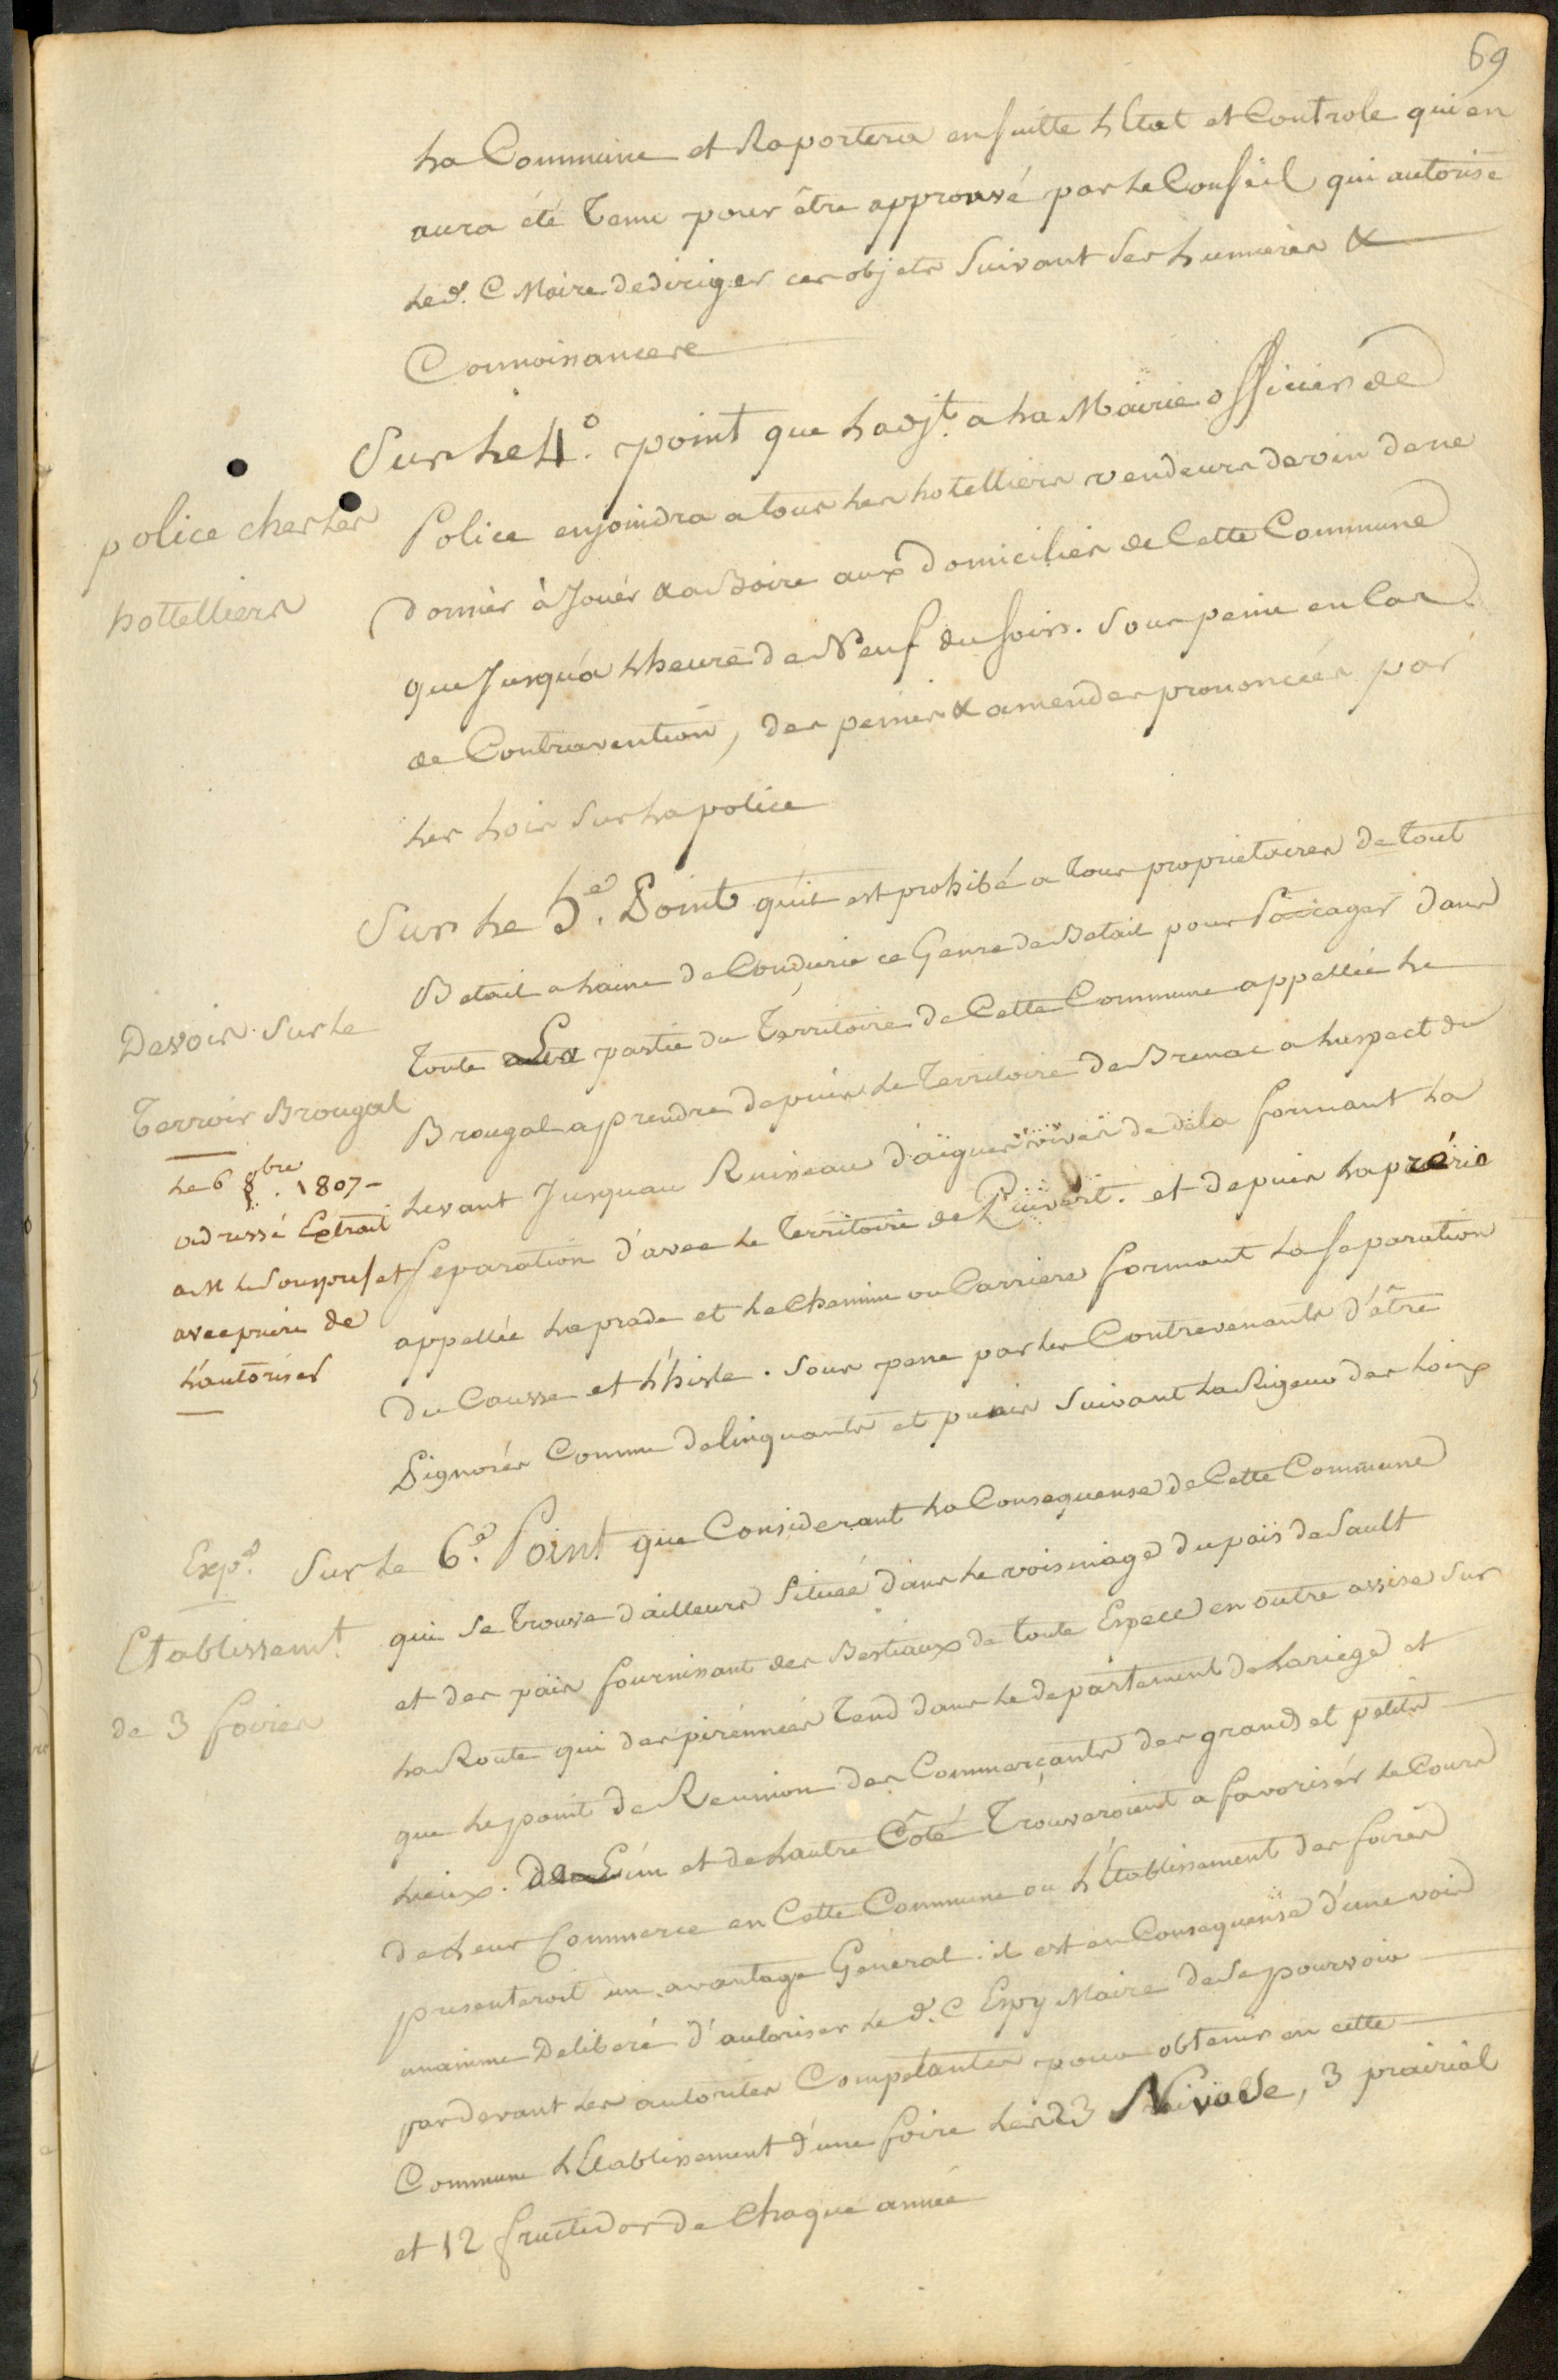 69
La Commune et Raportera ensuitte L'Etat et Controle qui en
aura été Tenu pour être approuvé par Le Conseil qui autorise
Led. C Maire de diriger ces objets Suivant Ses Lumieres &
Connoissances
Sur Le 4°. point que Ladjt. a La Mairie officier de
police ches Les
Police enjoindra a tous Les hotelliers vendeurs de vin de ne
hottelliers
donner à Jouér & a Boire aux Domiciliés de Cette Commune
que Jusqu'a L'heure de Neuf du soir. Sous peine en Cas
de Contravention, des peines & amendes prononcées par
Les Loix Sur La police
Sur Le 5e. Point qu'il est prohibé a Tous proprietaires de tout
Betail a Laine de Conduire ce Genre de Betail pour Pacager dans
Devoir Sur Le
Toute La partie du Territoire de Cette Commune appellée Le
Terroir Brougal
Brougal a prendre depuis Le Territoire de Brenac a Laspect du
Le 6 8bre. 1807 -
Levant Jusquau Ruisseau d'aigues vives de dela formant La
adressé Extrait
Separation d'avec Le Territoire de Puivert. et depuis La prérie
a M Le Sousprefet
appellée Laprade et Le Chemin ou Carriere formant La Separation
avec priere de
Du Causse et L'hisle. Sous pene par Les Contrevenants d'être
L'autoriser
Pignorés Comme delinquants et punis Suivant La Rigeur des Loix
Expd. Sur Le 6e. Point que Considerant La Consequense de Cette Commune
Etablissemt.
qui Se Trouve d'ailleurs Situeé dans Le voisinage du païs de Sault
de 3 foires
et des païs fournissant des Bestiaux de toute Espece en outre assise Sur
La Route qui des pirennées Tend dans Le departement de Lariege et
que Le point de Reunion des Commerçants des grands et petits
Lieux. De L'un et de Lautre Côté Trouveroient a favoriser Le Cours
de Leur Commerce en Cette Commune ou L'Etablissement des foires
presenteroit un avantage General. il est en Consequense d'une voix
unanime Deliberé d'autoriser Le d. C Espy Maire de Se pourvoir
par devant Les autorités Competantes pour obtenir en cette
Commune L'Etablissement d'une foire Les 23 Nivose, 3 prairial
et 12 fructidor de Chaque année